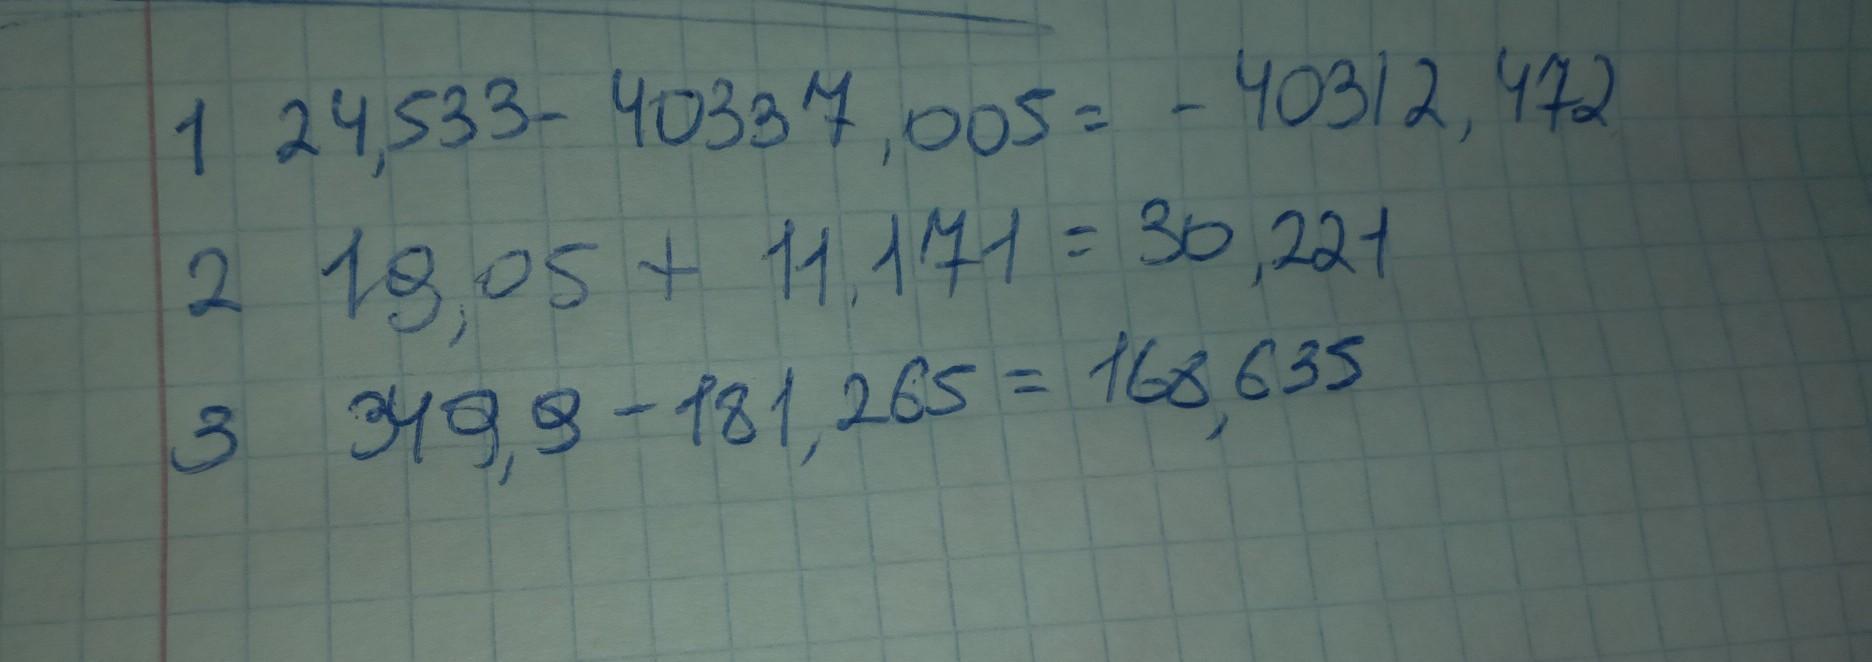 1 24,533 - 40337,005 = - 40312,472
2 19,05 + 11,171 = 30,221
3 349,9 - 181,265 = 168,635